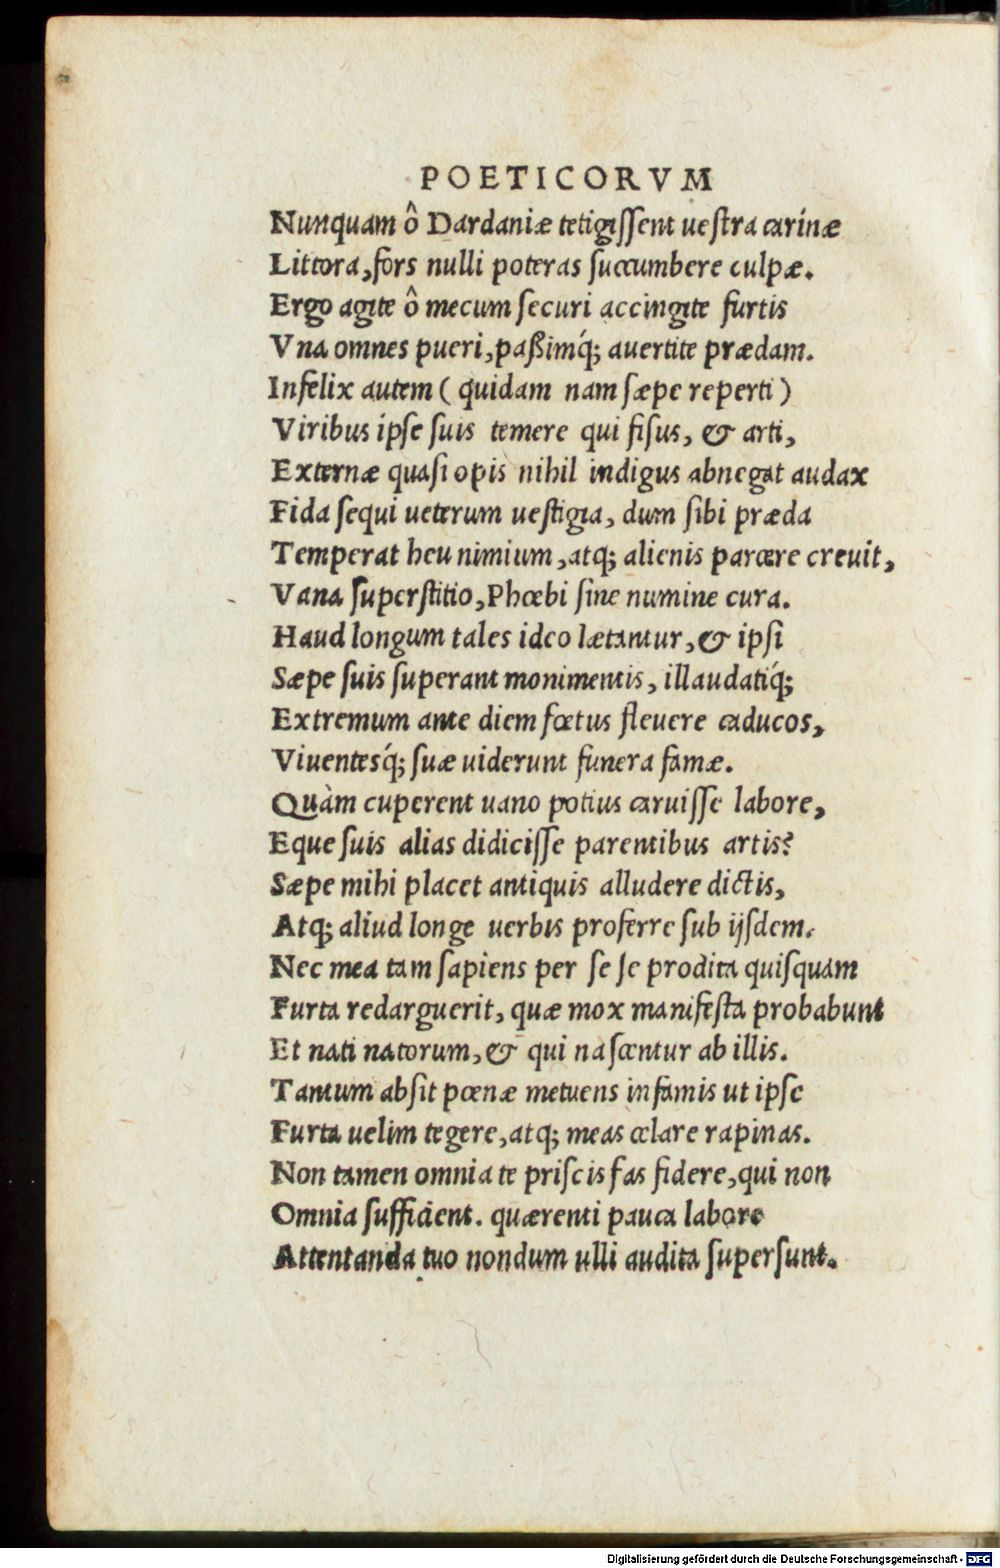 POETICORVM
Nunquam ô Dardaniæ tetigiſſent ueſtra carinæ
Littora, fors nulli poteras ſuccumbere culpæ.
Ergo agite ô mecum ſecuri accingite furtis
Vna omnes pueri, paßimq́; auertite prædam.
Infelix autem (quidam nam ſæpe reperti)
Viribus ipſe ſuis temere qui fiſus, & arti,
Externæ quaſi opis nihil indigus abnegat audax
Fida ſequi ueterum ueſtigia, dum ſibi præda
Temperat heu nimium, atq; alienis parcere creuit,
Vana ſuperſtitio, Phœbi ſine numine cura.
Haud longum tales ideo lætantur, & ipſi
Sæpe ſuis ſuperant monimentis, illaudatiq́;
Extremum ante diem fœtus fleuere caducos,
Viuentesq́; ſuæ uiderunt funera famæ.
Quàm cuperent uano potius caruiſſe labore,
Eque ſuis alias didiciſſe parentibus artis?
Sæpe mihi placet antiquis alludere dictis,
Atq; aliud longe uerbis proferre ſub ijſdem.
Nec mea tam ſapiens per ſe ſe prodita quiſquam
Furta redarguerit, quæ mox manifeſta probabunt
Et nati natorum, & qui naſcentur ab illis.
Tantum abſit pœnæ metuens infamis ut ipſe
Furta uelim tegere, atq; meas celare rapinas.
Non tamen omnia te priſcis fas fidere, qui non
Omnia ſufficient. quærenti pauca labore
Attentanda tuo nondum ulli audita ſuperſunt.
Digitalisierung gefördert durch die Deutsche Forschungsgemeinschaft - DFG